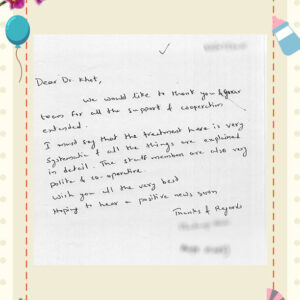 Dear Dr. Khet,
We would like to thank you & your
team for all the support & cooperation
extended.
I must say that the treatment here is very
systematic & all the things are explained
in detail. The staff members are also very
polite & co-operative.
Wish you all the very best
Hoping to hear a positive news soon
Thanks & Regards